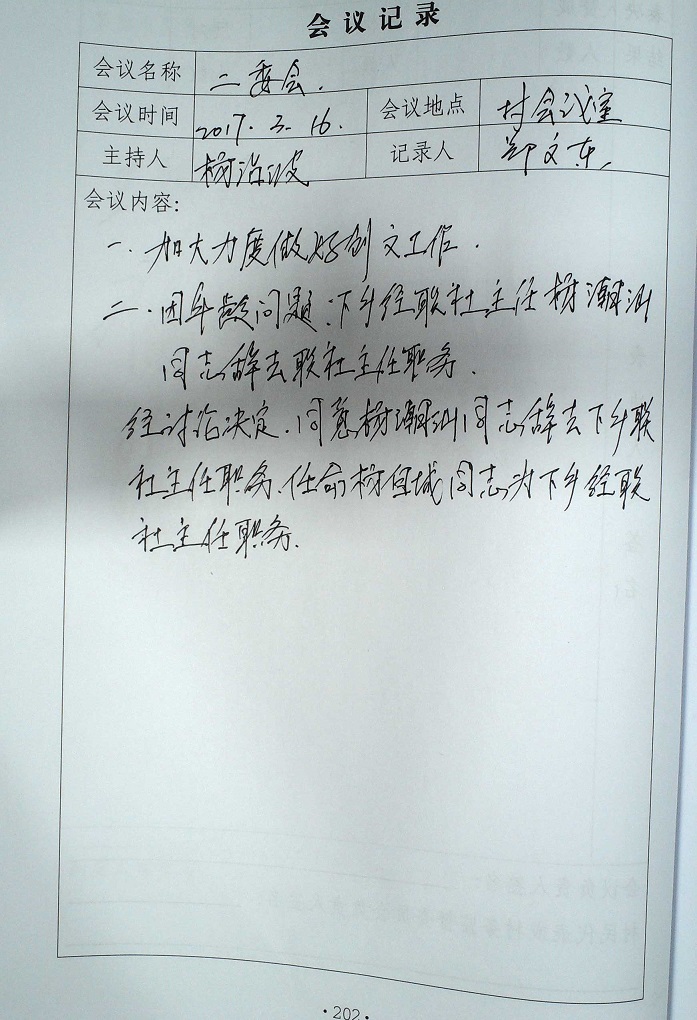 会议记录
会议名称 二委会.
会议时间 2017.3.16. 会议地点 村会议室
主持人 杨治波 记录人 郑文东
会议内容:
一.加大力度做好创文工作.
二.因年龄问题,下乡经联社主任杨潮汕
同志辞去联社主任职务.
经讨论决定.同意杨潮汕同志辞去下乡联
社主任职务.任命杨恒城同志为下乡经联
社主任职务.
·202·